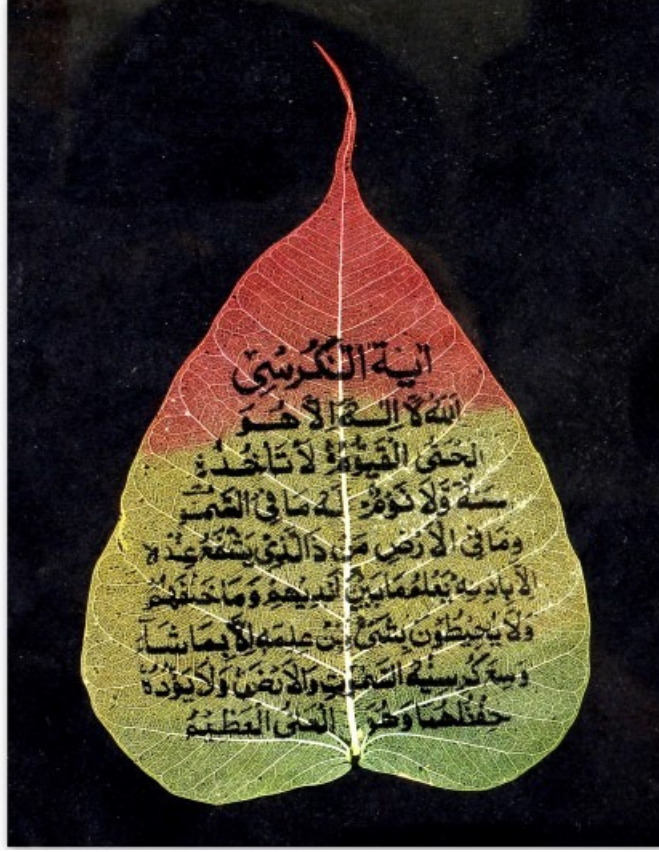 اٰیة الکرسی
اَللهُ لَا اِلٰهَ اِلَّا هُوَ
الْحَیُّ الْقَیُّوْمُ لَا تَاْخُذُهٗ
سِنَةٌ وَّلَا نَوْمٌ لَهٗ مَا فِی السَّمٰوٰتِ
وَمَا فِی الْاَرْضِ مَنْ ذَا الَّذِیْ یَشْفَعُ عِنْدَهٗ
اِلَّا بِاِذْنِهٖ یَعْلَمُ مَا بَیْنَ اَیْدِیْهِمْ وَمَا خَلْفَهُمْ
وَلَا یُحِیْطُوْنَ بِشَیْءٍ مِّنْ عِلْمِهٖ اِلَّا بِمَا شَآءَ
وَسِعَ کُرْسِیُّهُ السَّمٰوٰتِ وَالْاَرْضَ وَلَا یَؤُدُهٗ
حِفْظُهُمَا وَهُوَ الْعَلِیُّ الْعَظِیْمُ